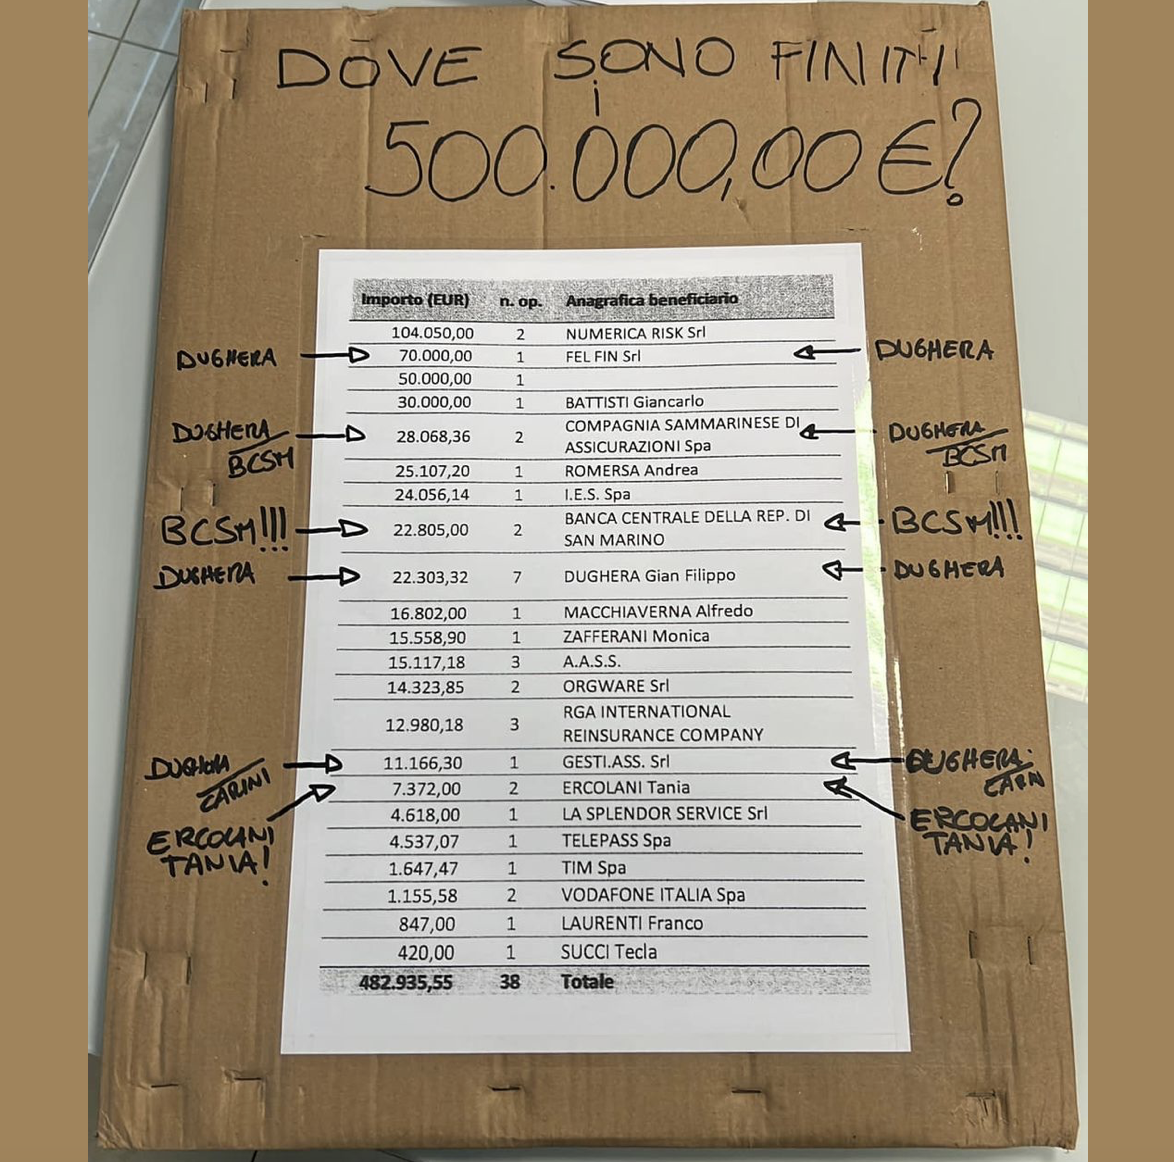 DOVE SONO FINITI
i
500.000,00 €?
Importo (EUR) n. op. Anagrafica beneficiario
104.050,00 2 NUMERICA RISK Srl
DUGHERA 70.000,00 1 FEL FIN Srl DUGHERA
50.000,00 1
30.000,00 1 BATTISTI Giancarlo
DUGHERA/BCSM 28.068,36 2 COMPAGNIA SAMMARINESE DI DUGHERA/BCSM
ASSICURAZIONI Spa
25.107,20 1 ROMERSA Andrea
24.056,14 1 I.E.S. Spa
BCSM!!! 22.805,00 2 BANCA CENTRALE DELLA REP. DI BCSM!!!
SAN MARINO
DUGHERA 22.303,32 7 DUGHERA Gian Filippo DUGHERA
16.802,00 1 MACCHIAVERNA Alfredo
15.558,90 1 ZAFFERANI Monica
15.117,18 3 A.A.S.S.
14.323,85 2 ORGWARE Srl
12.980,18 3 RGA INTERNATIONAL
REINSURANCE COMPANY
DUGHERA/CARINI 11.166,30 1 GESTI.ASS. Srl DUGHERA/CARN
7.372,00 2 ERCOLANI Tania
ERCOLANI 4.618,00 1 LA SPLENDOR SERVICE Srl ERCOLANI
TANIA! 4.537,07 1 TELEPASS Spa TANIA!
1.647,47 1 TIM Spa
1.155,58 2 VODAFONE ITALIA Spa
847,00 1 LAURENTI Franco
420,00 1 SUCCI Tecla
482.935,55 38 Totale